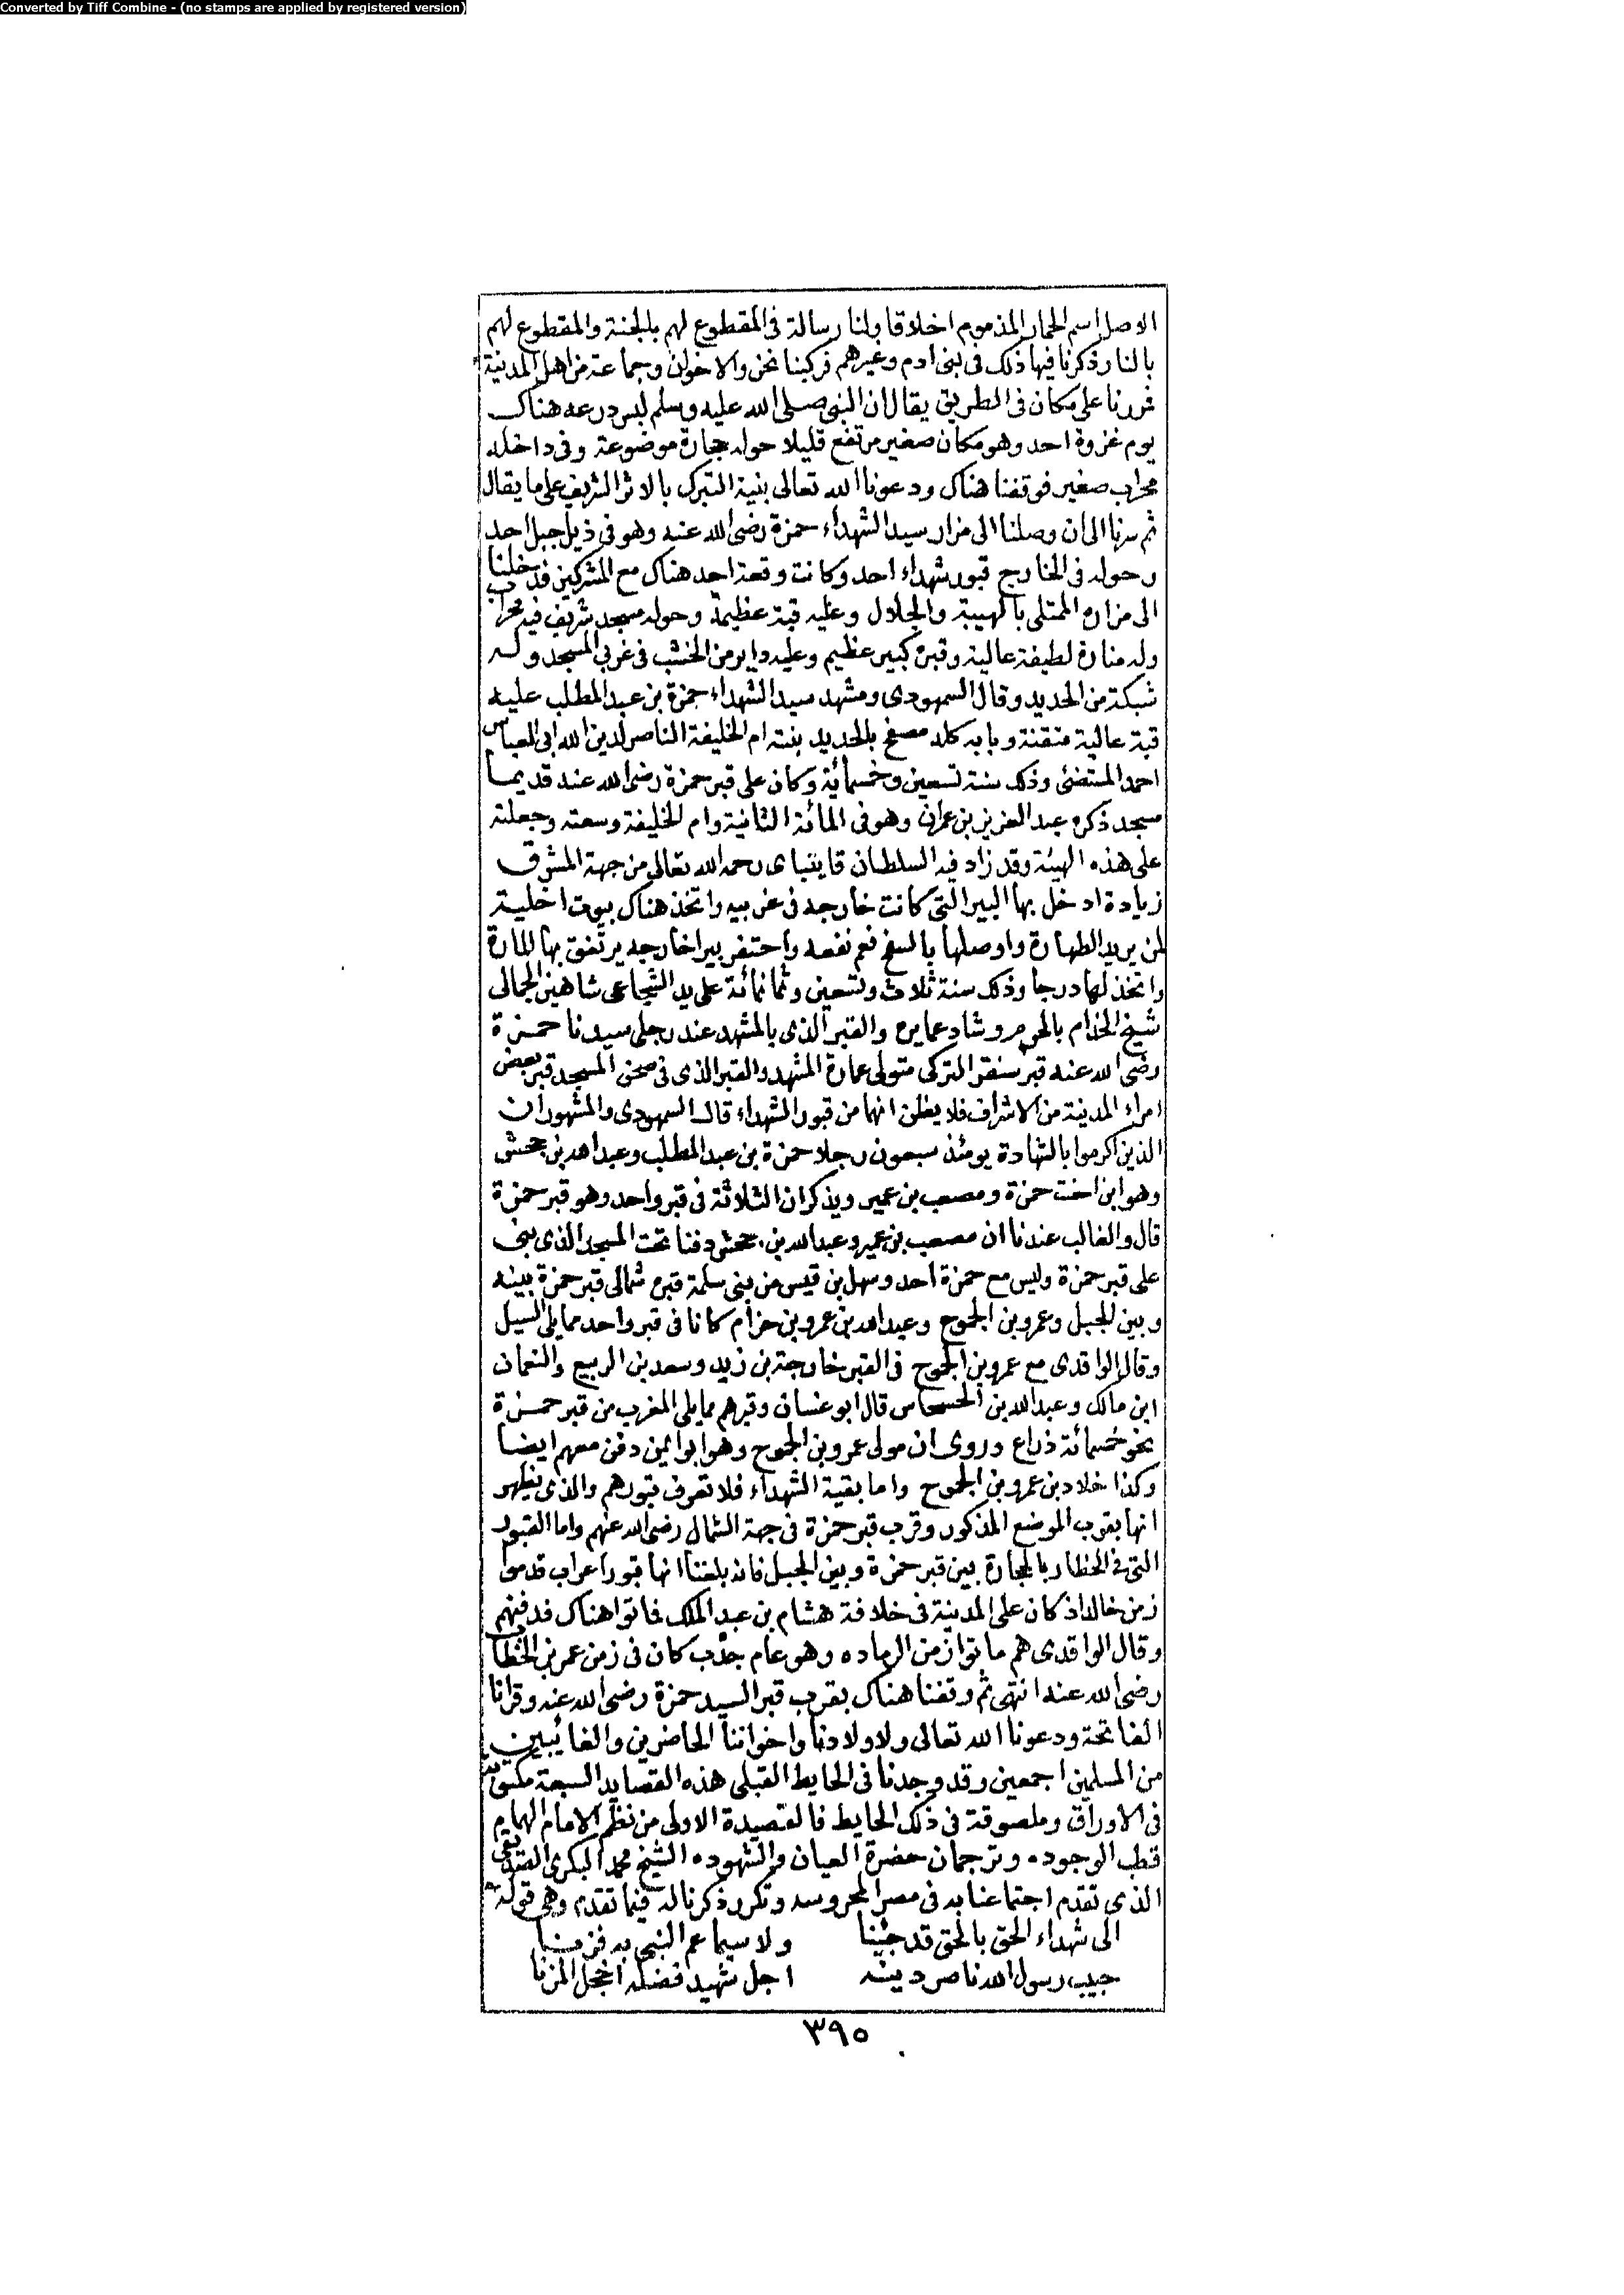 Converted by Tiff Combine - (no stamps are applied by registered version)
الاصل اسم الحمار المذموم اخلاقا ولنا رسالة فى المقطوع لهم بالجنة والمقطوع لهم
بالنار ذكرنا فيها ذلك فى بنى ادم وغيرهم فركبنا نحن والاخوان وجماعة من اهل المدينة
فمررنا على مكان فى الطريق يقال ان النبى صلى الله عليه وسلم لبس درعه هناك
يوم غزوة احد وهو مكان صغير مرتفع قليلا حوله حجارة موضوعة وفى داخله
محراب صغير فوقفنا هناك ودعونا الله تعالى بنية التبرك بالاثر الشريف على ما يقال
ثم سرنا الى ان وصلنا الى مزار سيد الشهداء حمزة رضى الله عنه وهو فى ذيل جبل احد
وحوله فى الخارج قبور شهداء احد وكانت وقعة احد هناك مع المشركين فدخلنا
الى مزاره الممتلى بالهيبة والجلال وعليه قبة عظيمة وحوله مسجد شريف فيه محراب
وله منارة لطيفة عالية وقبره كبير عظيم وعليه داير من الخشب فى غربى المسجد وله
شبكة من الحديد وقال السمهودى ومشهد سيد الشهداء حمزة بن عبد المطلب عليه
قبة عالية متقنة وبابه كله مصفح بالحديد بنته ام الخليفة الناصر لدين الله ابى العباس
احمد المستضئ وذلك سنة تسعين وخمسمائة وكان على قبر حمزة رضى الله عنه قديما
مسجد ذكره عبد العزيز بن عمران وهو فى المائة الثانية وام الخليفة وسعته وجعلته
على هذه الهيئة وقد زاد فيه السلطان قايتباى رحمه الله تعالى من جهة المشرق
زيادة ادخل بها البير التى كانت خارجه فى غربيه واتخذ هناك بيوت اخلية
لمن يريد الطهارة واوصلها بالسفح فعم نفعه واحتفر بيرا خارجه يرتفق بها المارة
واتخذ لها درجا وذلك سنة ثلاث وتسعين وثمانمائة على يد الشجاعى شاهين الجمالى
شيخ الخدام بالحرم وشاد عمايره والقبر الذى بالمشهد عند رجلى سيدنا حمزة
رضى الله عنه قبر سنقر التركى متولى عمارة المشهد والقبر الذى فى صحن المسجد قبر بعض
امراء المدينة من الاشراف فلا يظن انهما من قبور الشهداء قال السمهودى والمشهور ان
الذين اكرموا بالشهادة يومئذ سبعون رجلا حمزة بن عبد المطلب وعبد الله بن جحش
وهو ابن اخت حمزة ومصعب بن عمير ويذكر ان الثلاثة فى قبر واحد وهو قبر حمزة
قال والغالب عندنا ان مصعب بن عمير وعبد الله بن جحش دفنا تحت المسجد الذى بنى
على قبر حمزة وليس مع حمزة احد وسهل بن قيس من بنى سلمة قبره شمالى قبر حمزة بينه
وبين الجبل وعمرو بن الجموح وعبد الله بن عمرو بن حزام كانا فى قبر واحد مما يلى السيل
وقال الواقدى مع عمرو بن الجموح فى القبر خارجة بن زيد وسعد بن الربيع والنعمان
ابن مالك وعبد الله بن الحسحاس قال ابو غسان وقبرهم مما يلى المغرب من قبر حمزة
نحو خمسمائة ذراع وروى ان مولى عمرو بن الجموح وهو ابو ايمن دفن معهم ايضا
وكذا خلاد بن عمرو بن الجموح واما بقية الشهداء فلا تعرف قبورهم والذى يظهر
انها بقرب الموضع المذكور وقرب قبر حمزة فى جهة الشمال رضى الله عنهم واما القبور
التى فى الحظار بالحجارة بين قبر حمزة وبين الجبل فانه بلغنا انها قبور اعراب قدموا
زمن خالد اذ كان على المدينة فى خلافة هشام بن عبد الملك فماتوا هناك فدفنهم
وقال الواقدى هم ماتوا زمن الرماده وهو عام جدب كان فى زمن عمر بن الخطاب
رضى الله عنه انتهى ثم وقفنا هناك بقرب قبر السيد حمزة رضى الله عنه وقرانا
الفاتحة ودعونا الله تعالى ولاولادنا واخواننا الحاضرين والغائبين
من المسلمين اجمعين وقد وجدنا فى الحايط القبلى هذه القصايد السبعة مكتوبة
فى الاوراق وملصوقة فى ذلك الحايط فالقصيدة الاولى من نظم الامام الهمام
قطب الوجود، وترجمان حضرة العيان والشهود، الشيخ محمد البكرى الصديقى
الذى تقدم اجتماعنا به فى مصر المحروسه وتكرر ذكرنا له فيما تقدم وهى قوله
الى شهداء الحق بالحق قد جئنا ولا سيما عم النبى به فزنا
حبيب رسول الله ناصر دينه اجل شهيد فضله اخجل المزنا
٣٩٥